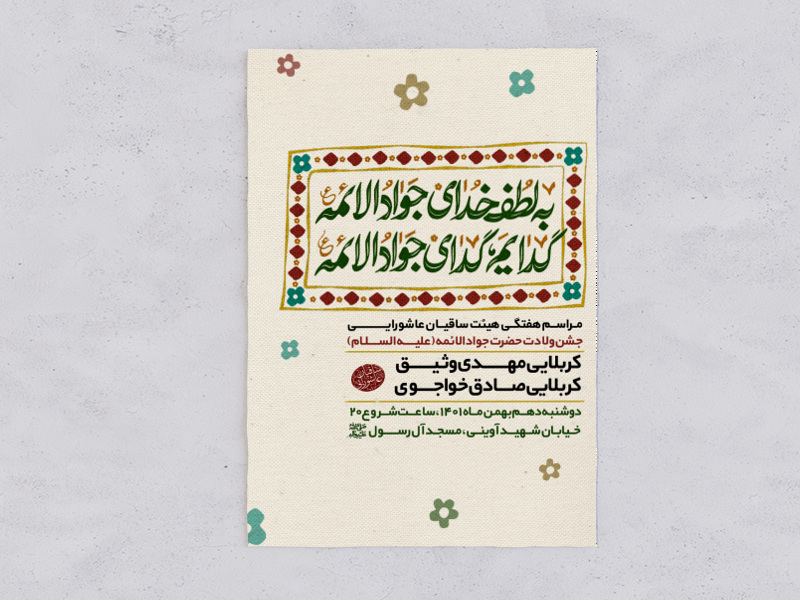 به لطف خدای جوادالائمه ع
گدایم، گدای جوادالائمه ع
مراسم هفتگی هیئت ساقیان عاشورایی
جشن ولادت حضرت جوادالائمه (علیه السلام)
کربلایی مهدی وثیق
کربلایی صادق خواجوی
دوشنبه دهم بهمن ماه ۱۴۰۱، ساعت شروع ۲۰
خیابان شهید آوینی، مسجد آل رسول